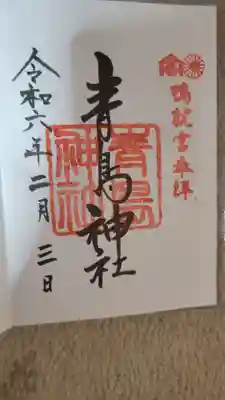 鴨就宮奉拝
青島神社
青島神社
令和六年二月三日